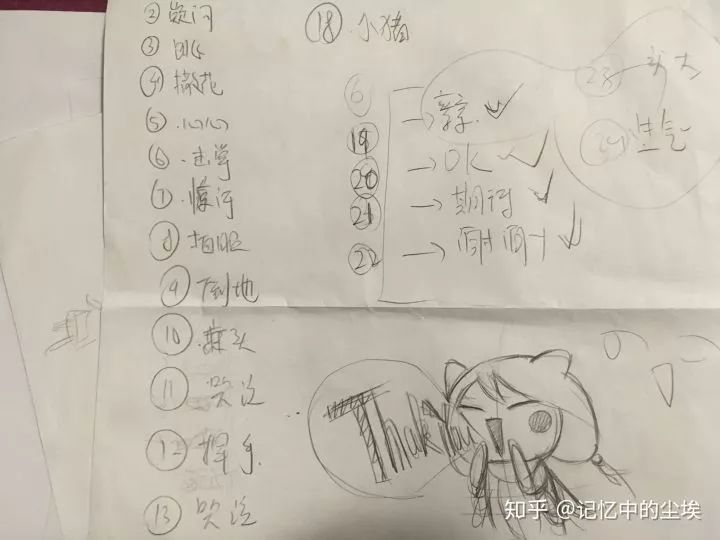 ② 疑问
③
④ 撒花
⑤ 心心
⑥ 击掌
⑦ 惊讶
⑧
⑨ 倒地
⑩
⑪ 哭泣
⑫ 挥手
⑬ 哭泣
⑱ 小猪
⑥
⑲
→ OK ✓
⑳
→ 期待 ✓
㉑
㉒
㉓
生气
Thank You
知乎 @记忆中的尘埃